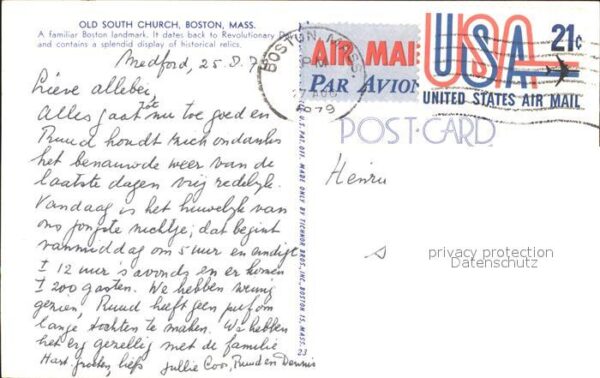 OLD SOUTH CHURCH, BOSTON, MASS.
A familiar Boston landmark. It dates back to Revolutionary
and contains a splendid display of historical relics.
Medford, 25.8.7
Lieve allebei,
Alles gaat tot nu toe goed en
Ruud houdt zich ondanks
het benauwde weer van de
laatste dagen vrij redelijk.
Vandaag is het huwelijk van
ons jongste nichtje; dat begint
vanmiddag om 5 uur en eindigt
± 12 uur 's avonds en er komen
± 200 gasten. We hebben weinig
gezien, Ruud heeft geen puf om
lange tochten te maken. We hebben
het erg gezellig met de familie
Hart. groeten, liefs Jullie Coos, Ruud en Dennis
U.S. PAT. OFF. MADE ONLY BY TICHNOR BROS., INC., BOSTON 15, MASS.
23
BOSTON, MASS.
PM
27 AUG
AIR MAIL
PAR AVION
USA 21c
UNITED STATES AIR MAIL
POST CARD
Henru
privacy protection
Datenschutz